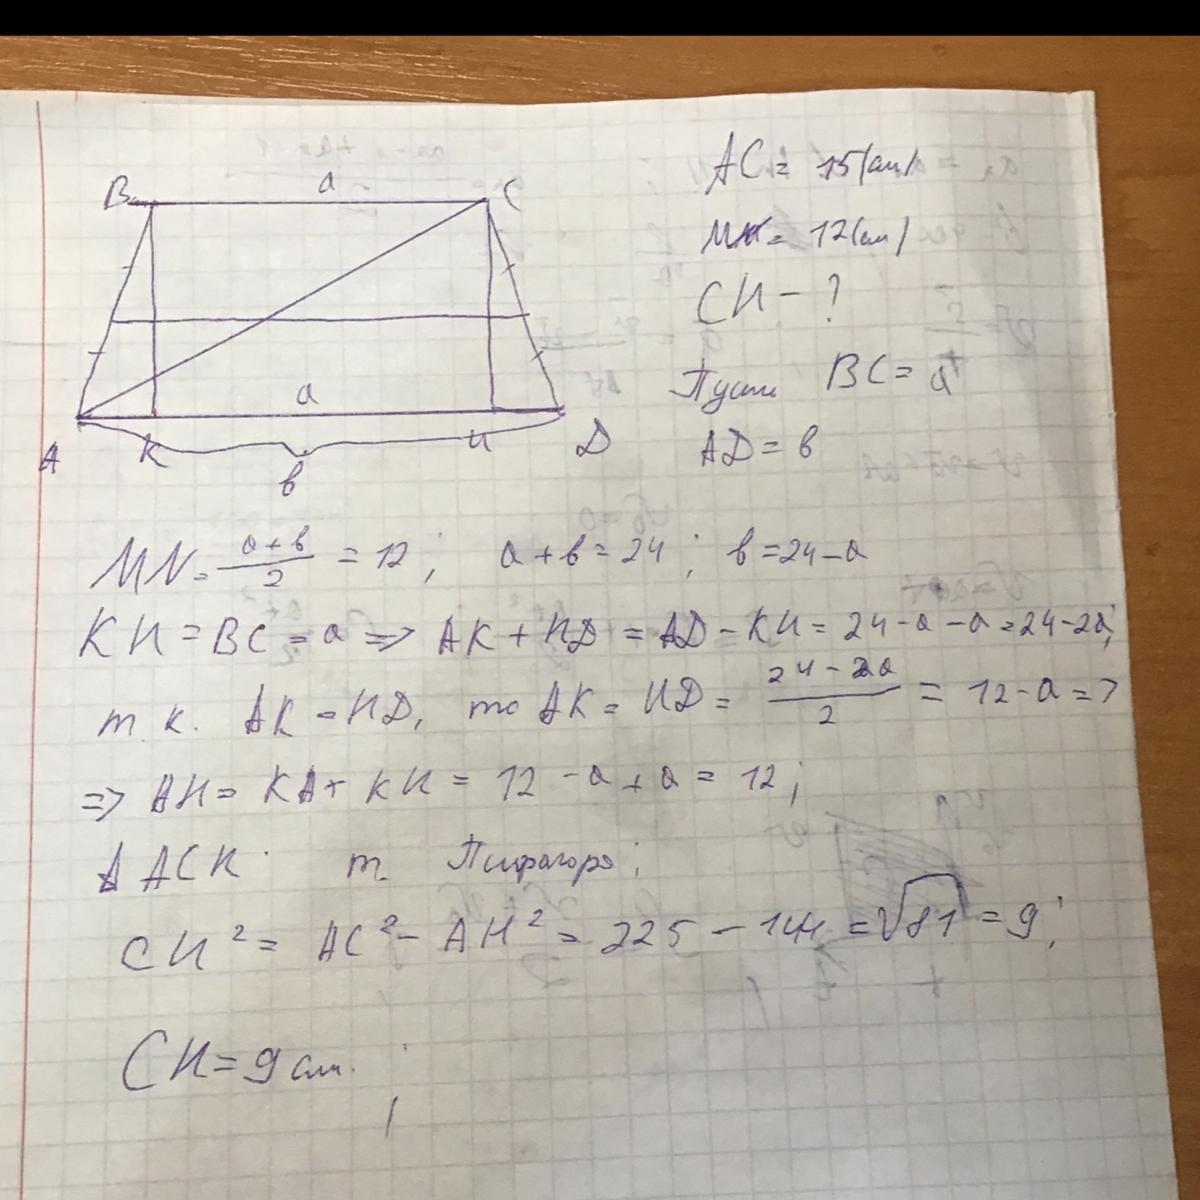 B a C
a
A K H D
в
AC = 15(см)
MN = 12(см)
CH - ?
Пусть BC = a
AD = в
MN = (a+в)/2 = 12; a+в = 24; в = 24-a
KH = BC = a => AK + HD = AD - KH = 24-a-a = 24-2a;
т. к. AK = HD, то AK = HD = (24-2a)/2 = 12-a =>
=> AH = KA + KH = 12 - a + a = 12;
Δ ACH т Пифагора;
CH² = AC² - AH² = 225 - 144 = √81 = 9;
CH = 9 см.